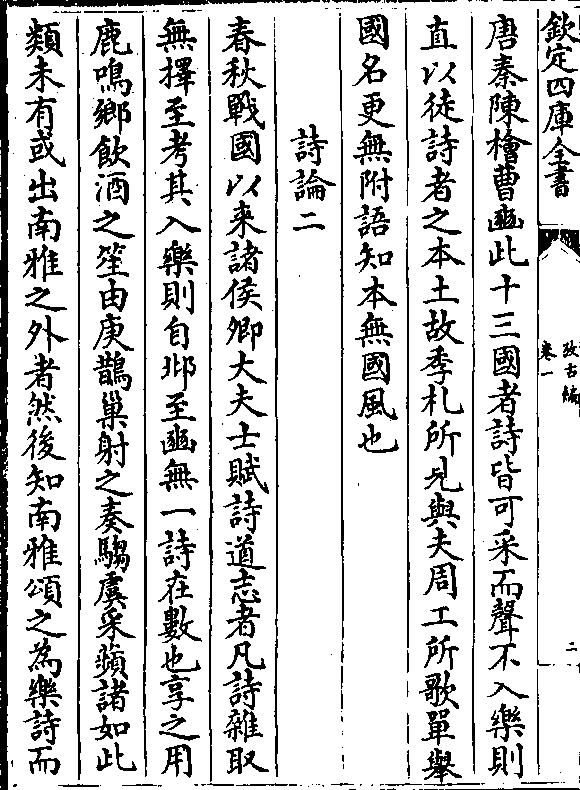 欽定四庫全書
攷古編
卷一
二
唐秦陳檜曹豳此十三國者詩皆可采而聲不入樂則
直以徒詩者之本土故季札所見與夫周工所歌單舉
國名更無附語知本無國風也
詩論二
春秋戰國以来諸侯卿大夫士賦詩道志者凡詩雜取
無擇至考其入樂則自邶至豳無一詩在數也享之用
鹿鳴鄉飲酒之笙由庚鵲巢射之奏騶虞采蘋諸如此
類未有或出南雅之外者然後知南雅頌之為樂詩而